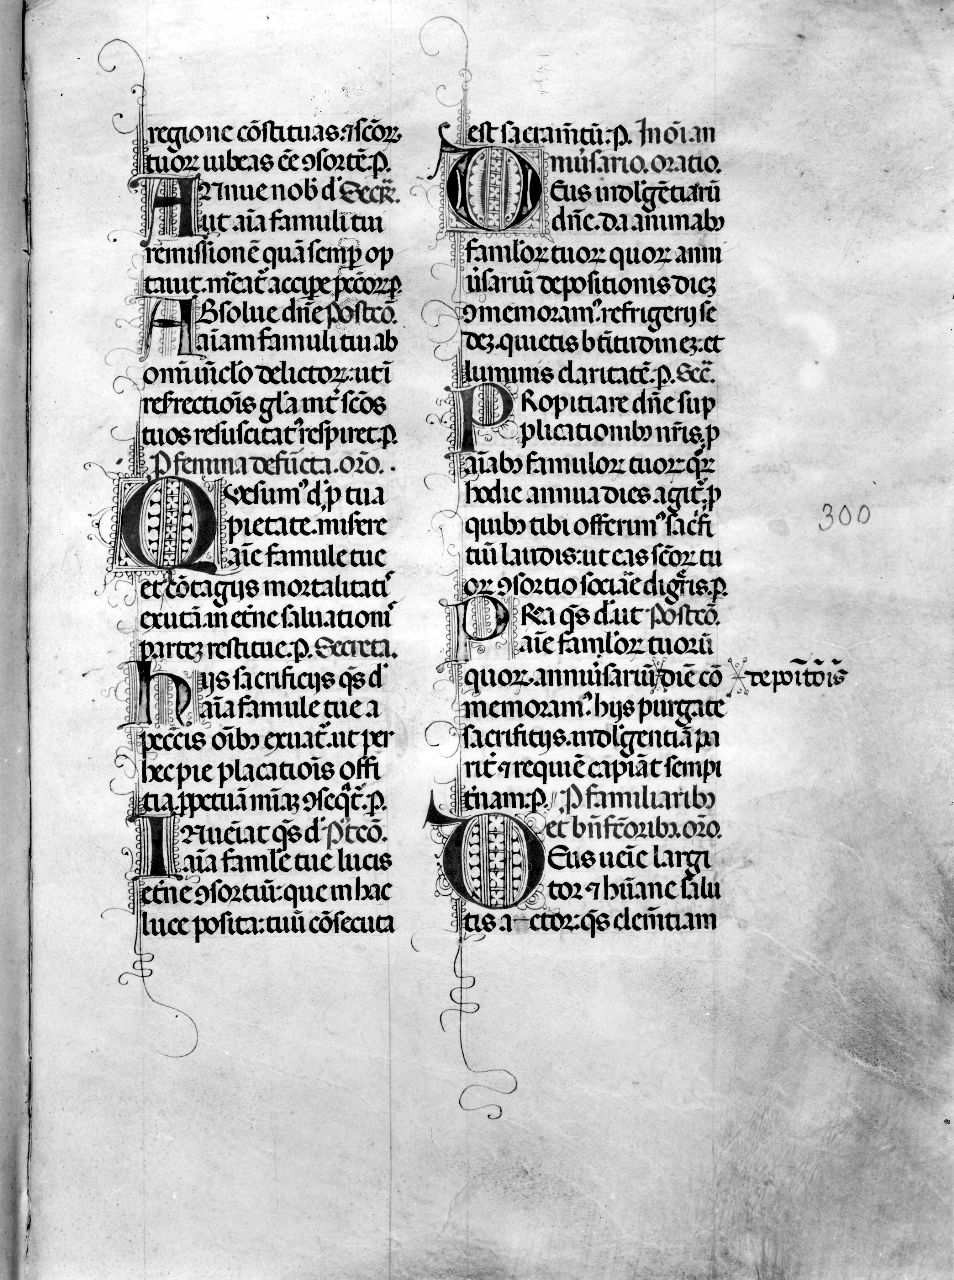 regione cōstituas.⁊ scōꝝ.
tuoꝝ iubeas ēē ꝯsortē.P.
ANnue nob̄ d̄ Secr̄.
ut aīa famuli tui
remissionē quā semꝑ op
tauit.m̄eat̄ accipe pccōꝝ.p.
ABsolue dn̄e Postcō.
aīam famuli tui ab
om̄i uīclo delictoꝝ:ut ī
resrectiōis gl̄a int̄ scōs
tuos resuscitat᷒ respiret.P.
P femina defūcta.orō.
QVesum᷒ d̄.p tua
pietate.misere
aīe famule tue
et cōtagijs mortalitat᷒
exutā.in et̄ne saluationi᷒
partez restitue.P. Secreta.
hijs sacrificijs qs̄ d̄
aīa famule tue a
peccīs oībꝰ exuat̄.ut per
hec pie placatiōis offi
tia.ꝑpetuā mīaꝫ ꝯseqt̄.P.
INueīat qs̄ d̄ P᷒tcō.
aīa famlē tue lucis
et̄ne ꝯsortiū.que in hac
luce posita:tuū cōsecuta
est sacram̄tū.P. In oī an
niu᷒sario.oratio.
DEus indulgētiarū
dn̄e.da animabꝰ
famloꝝ tuoꝝ quoꝝ anni
u᷒sariū depositionis dieꝫ
ꝯmemoram᷒.refrigerij sē
deꝫ.quietis btītudineꝫ.et
luminis claritatē.P. Sec̄.
PRopitiare dn̄e sup
plicationibꝰ nr̄is.p
aīabꝰ famuloꝝ tuoꝝ.qꝝ
hodie annua dies agit̄.p
quibꝰ tibi offerim᷒ sacfi
tiū laudis:ut eas scōꝝ tu
oꝝ ꝯsortio sociāe dignīs.P.
PREa qs̄ d̄.ut Postcō.
aīe famloꝝ tuorū
quoꝝ.anniu᷒sariū diē cō depoītōis
memoram᷒.hijs purgate
sacrifitijs.indulgentiā pa
rit̄ ⁊ requiē capiāt sempi
t᷒nam.P. P familiaribꝰ
et bn̄fcōribꝰ.orō.
DEus uenie largi
tor ⁊ hūane salu
tis actor.qs̄ clem̄tiam
300